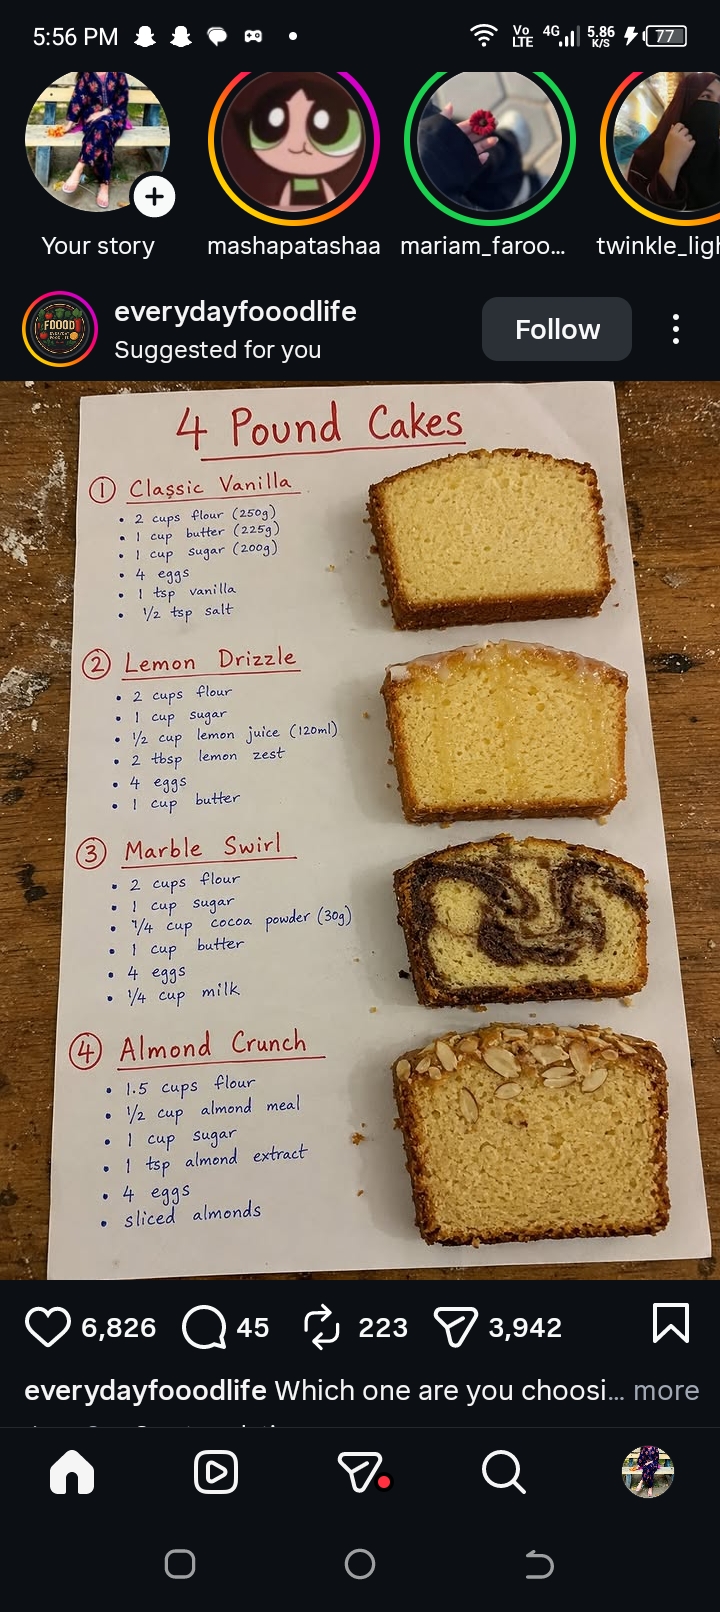 5:56 PM
Vo LTE 4G 5.86 K/S 77
Your story
mashapatashaa
mariam_faroo...
twinkle_ligh
FOOOD
everydayfooodlife
Follow
Suggested for you
4 Pound Cakes
1 Classic Vanilla
• 2 cups flour (250g)
• 1 cup butter (225g)
• 1 cup sugar (200g)
• 4 eggs
• 1 tsp vanilla
• 1/2 tsp salt
2 Lemon Drizzle
• 2 cups flour
• 1 cup sugar
• 1/2 cup lemon juice (120ml)
• 2 tbsp lemon zest
• 4 eggs
• 1 cup butter
3 Marble Swirl
• 2 cups flour
• 1 cup sugar
• 1/4 cup cocoa powder (30g)
• 1 cup butter
• 4 eggs
• 1/4 cup milk
4 Almond Crunch
• 1.5 cups flour
• 1/2 cup almond meal
• 1 cup sugar
• 1 tsp almond extract
• 4 eggs
• sliced almonds
6,826 45 223 3,942
everydayfooodlife Which one are you choosi... more